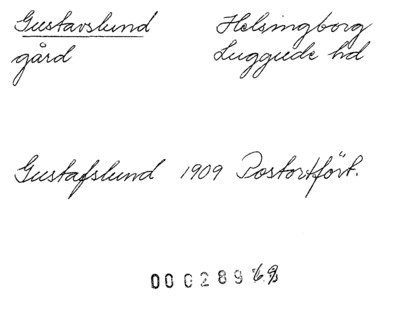 Gustavslund Helsingborg
gård Luggude hd
Gustafslund 1909 Postortfört.
000289